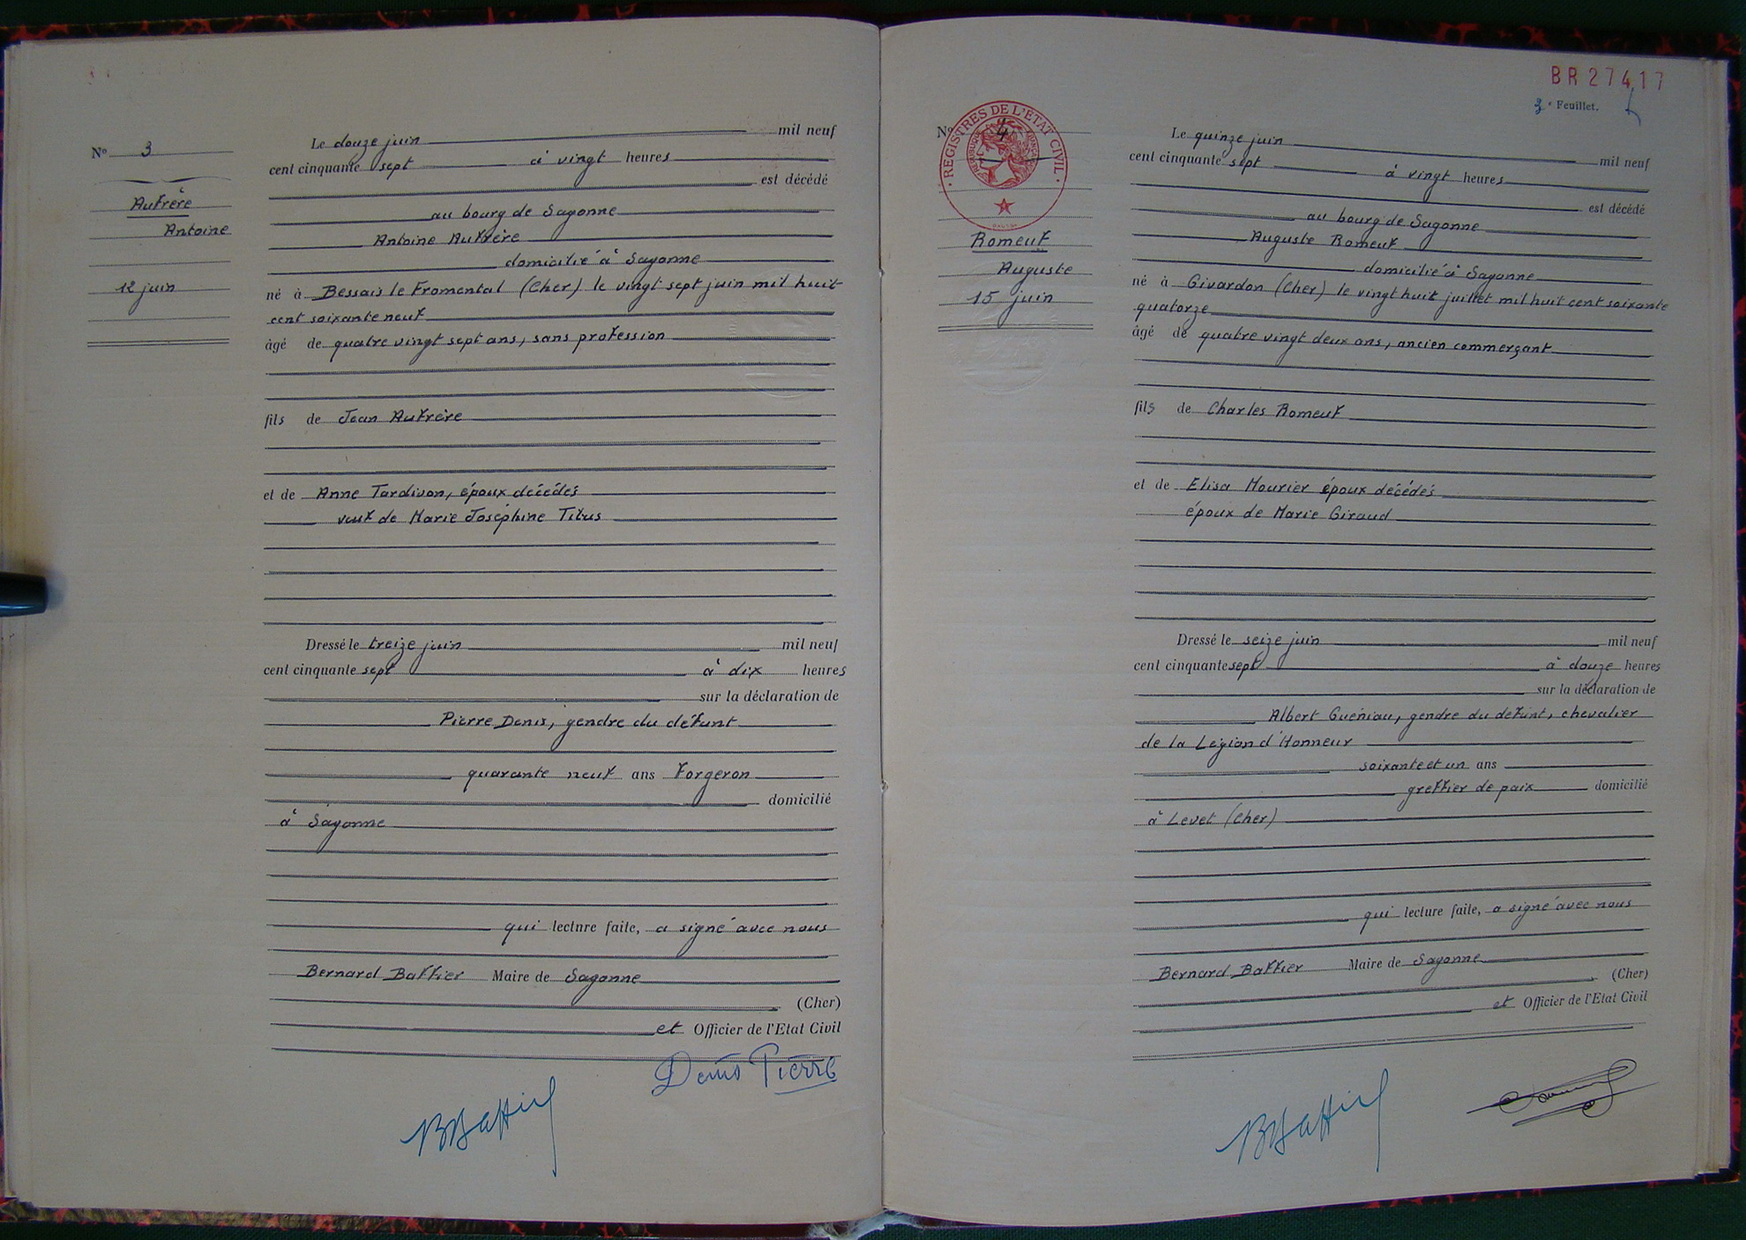 Nº 3
Aufrère
Antoine
12 juin
Le douze juin mil neuf
cent cinquante sept à vingt heures
est décédé
au bourg de Sagonne
Antoine Aufrère
domicilié à Sagonne
né à Bessais le Fromental (Cher) le vingt sept juin mil huit
cent soixante neuf
âgé de quatre vingt sept ans, sans profession
fils de Jean Aufrère
et de Anne Tardivon, époux décédés
veuf de Marie Joséphine Titus
Dressé le treize juin mil neuf
cent cinquante sept à dix heures
sur la déclaration de
Pierre Denis, gendre du défunt
quarante neuf ans forgeron
domicilié
à Sagonne
qui lecture faite, a signé avec nous
Bernard Baffier Maire de Sagonne
(Cher)
et Officier de l'Etat Civil
Denis Pierre
BBaffier
BR27417
3e Feuillet.
Nº 4
REGISTRES DE L'ETAT CIVIL
Romeuf
Auguste
15 juin
Le quinze juin mil neuf
cent cinquante sept à vingt heures
est décédé
au bourg de Sagonne
Auguste Romeuf
domicilié à Sagonne
né à Givardon (Cher) le vingt huit juillet mil huit cent soixante
quatorze
âgé de quatre vingt deux ans, ancien commerçant
fils de Charles Romeuf
et de Elisa Mourier époux décédés
époux de Marie Giraud
Dressé le seize juin mil neuf
cent cinquante sept à douze heures
sur la déclaration de
Albert Guéniau, gendre du défunt, chevalier
de la Légion d'Honneur
soixante et un ans
greffier de paix domicilié
à Levet (Cher)
qui lecture faite, a signé avec nous
Bernard Baffier Maire de Sagonne
(Cher)
et Officier de l'Etat Civil
BBaffier